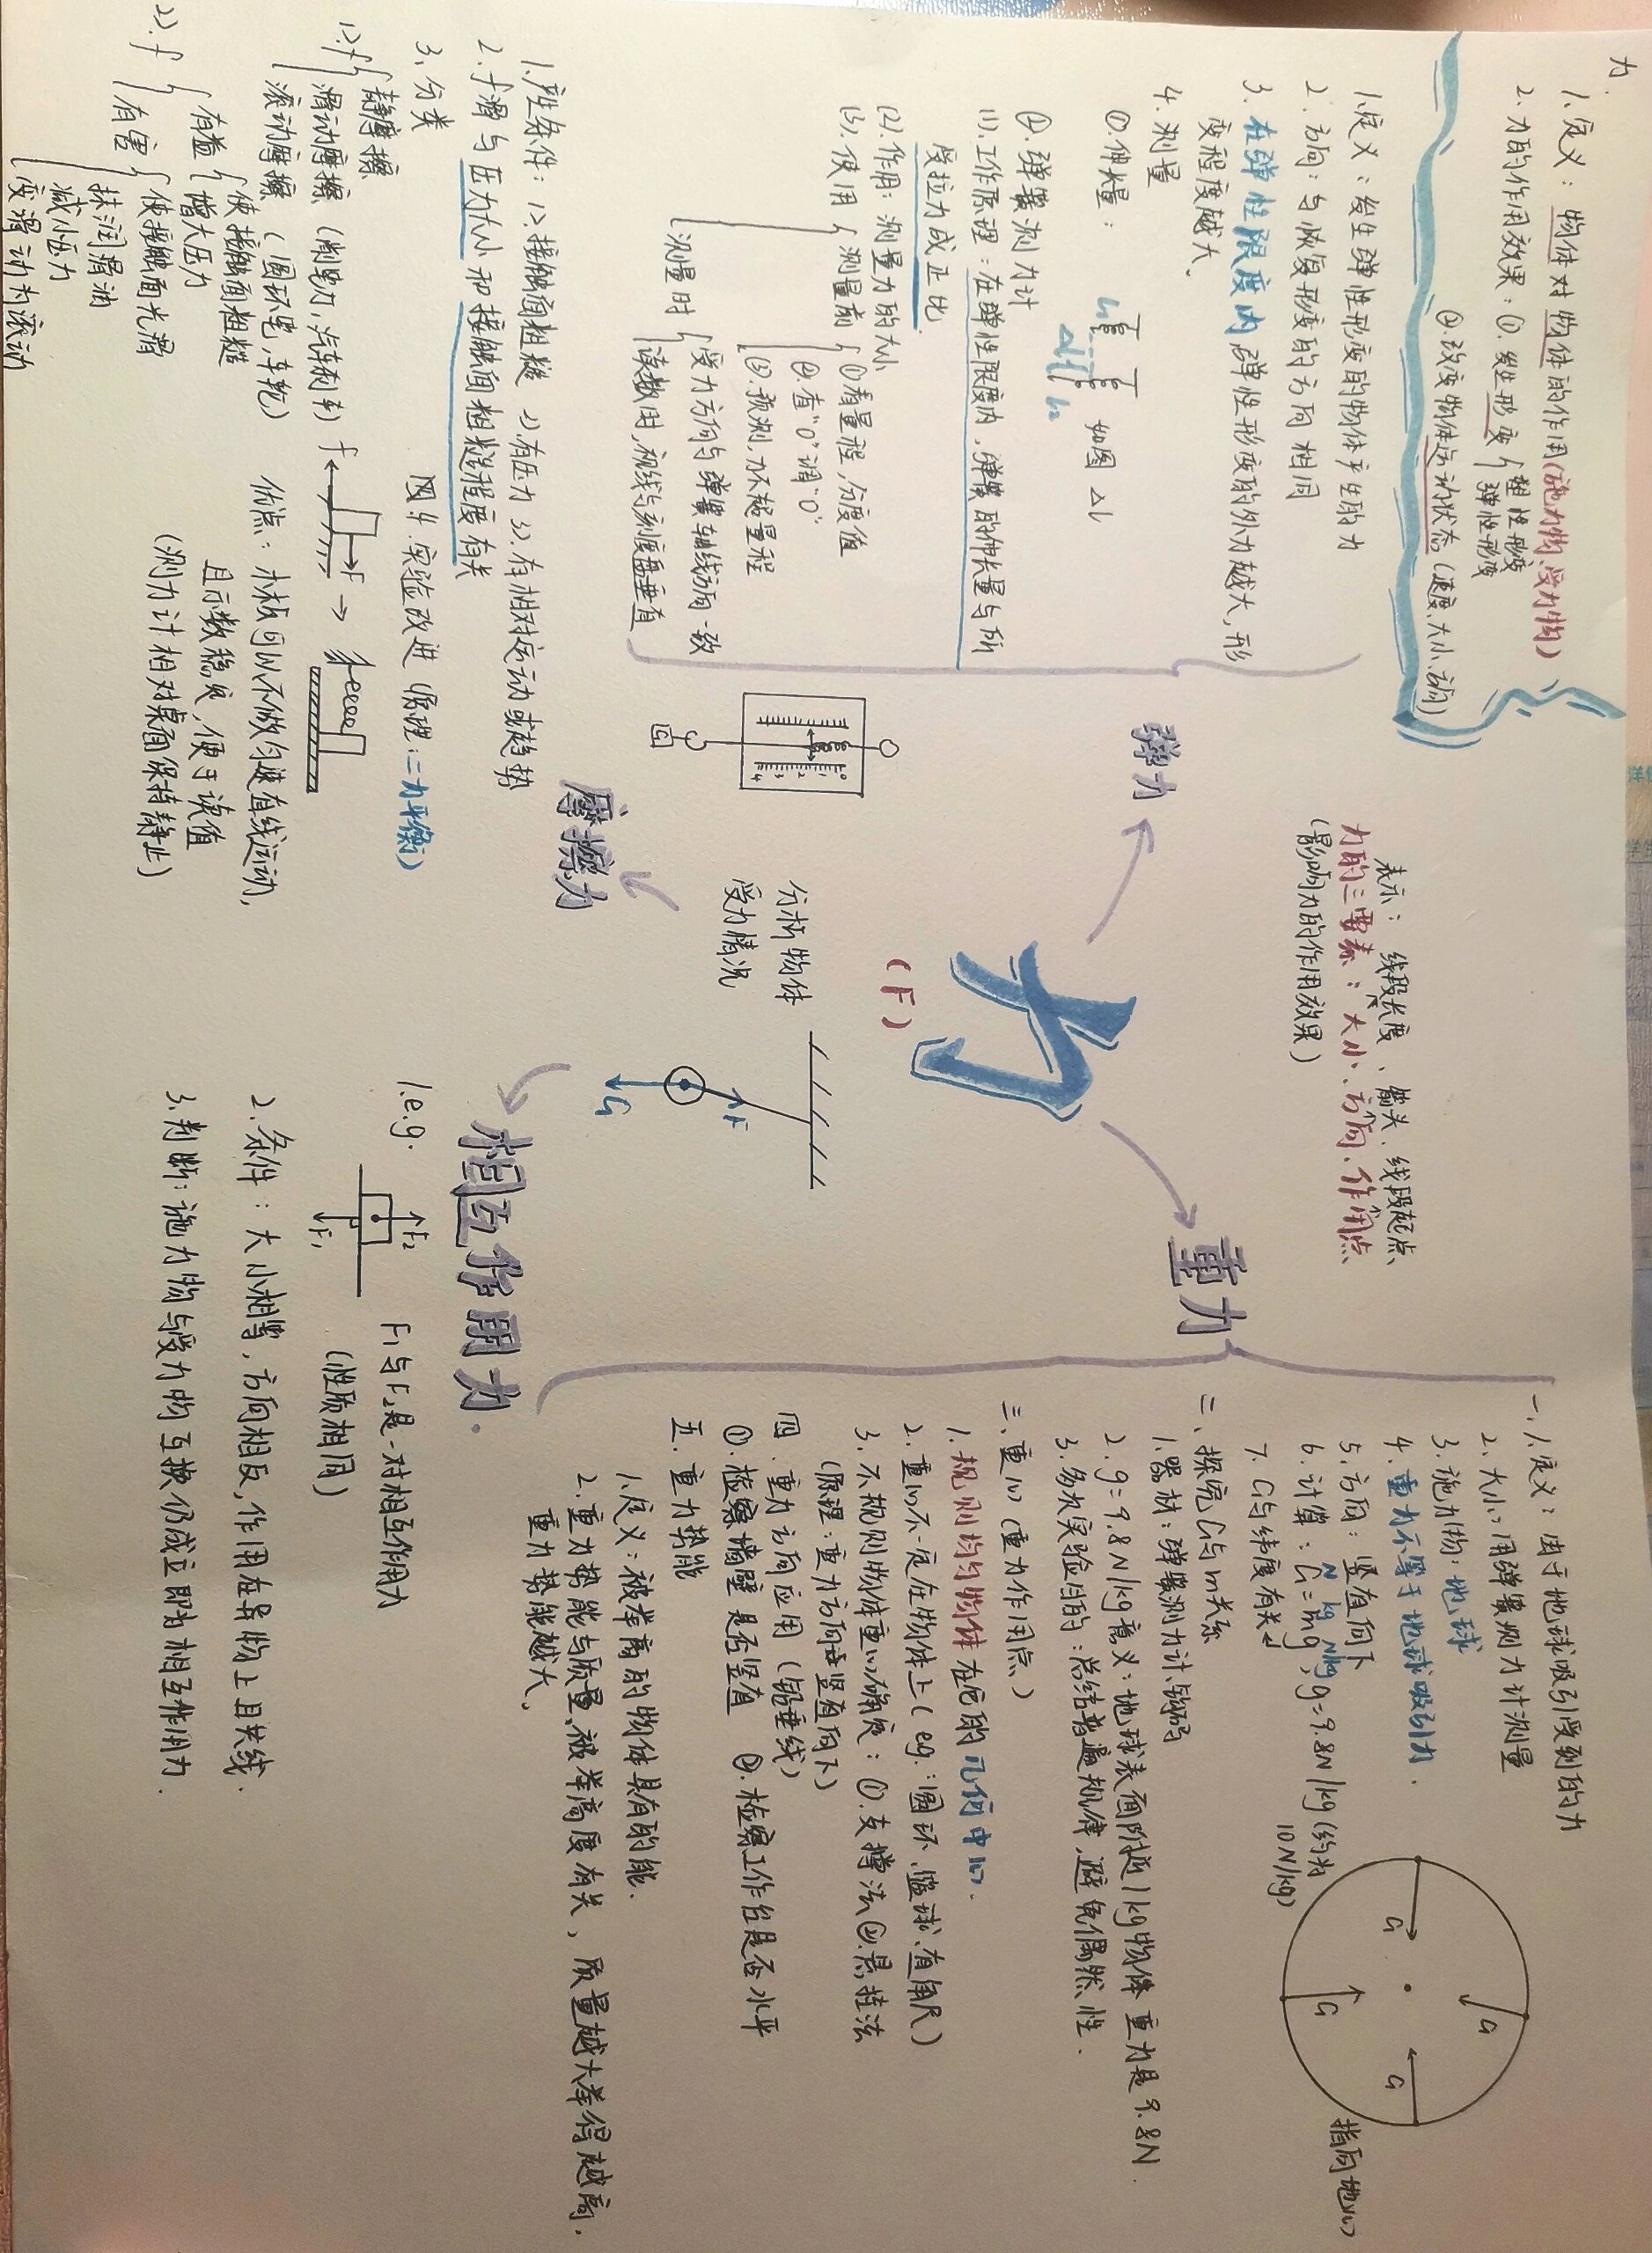 力.
1.定义：物体对物体的作用(施力物、受力物)
2.力的作用效果：①.发生形变
塑性形变
弹性形变
②.改变物体运动状态(速度、大小、方向)
表示：线段长度、箭头、线段起点
力的三要素：大小、方向、作用点
(影响力的作用效果)
力
(F)
弹力
1.定义：发生弹性形变的物体产生的力
2.方向：与恢复形变的方向相同
3.在弹性限度内,弹性形变的外力越大,形
变程度越大、
4.测量
①.伸长量：
L1
ΔL
L2
如图 △L
②.弹簧测力计
(1).工作原理：在弹性限度内,弹簧的伸长量与所
受拉力成正比
(2).作用：测量力的大小
(3).使用
测量前
①看量程,分度值
②.查“0”调“0”
③.预测,力不超量程
测量时
受力方向与弹簧轴线方向一致
读数时,视线与刻度盘垂直
0
1
2
3
4
图
摩擦力
1.产生条件：1>.接触面粗糙 2).有压力 3>.有相对运动或趋势
2.f滑与压力大小和接触面粗糙程度有关
3.分类
1>.f
静摩擦
滑动摩擦 (削笔刀,汽车刹车)
滚动摩擦 (圆环笔,车轮)
2).f
有益
使接触面粗糙
增大压力
有害
使接触面光滑
抹润滑油
减小压力
变滑动为滚动
图4.实验改进(原理：二力平衡)
f
F
优点：木板可以不做匀速直线运动,
且示数稳定,便于读值
(测力计相对桌面保持静止)
分析物体
受力情况
F
G
重力
一、1.定义：由于地球吸引受到的力
2.大小：用弹簧测力计测量
3.施力物：地球
4.重力不等于地球吸引力.
5.方向：竖直向下
N kg N/kg
6.计算：G=mg,g=9.8N/kg(约为
10N/kg)
7.G与纬度有关
G
G
G
G
指向地心
二、探究G与m关系
1.器材：弹簧测力计、钩码
2.g=9.8N/kg意义：地球表面附近1kg物体重力是9.8N.
3.多次实验目的：总结普遍规律,避免偶然性.
三、重心(重力作用点)
1.规则均匀物体在它的几何中心.
2.重心不一定在物体上(eg.：圆环、篮球、直角尺)
3.不规则物体重心确定：①.支撑法②.悬挂法
(原理：重力方向竖直向下)
四.重力方向应用(铅垂线)
①.检察墙壁是否竖直 ②.检察工作台是否水平
五.重力势能
1.定义：被举高的物体具有的能.
2.重力势能与质量、被举高度有关,质量越大举得越高,
重力势能越大、
相互作用力.
1.e.g.
F2
F1
F1与F2是一对相互作用力
(性质相同)
2.条件：大小相等,方向相反,作用在异物上且共线.
3.判断：施力物与受力物互换仍成立即为相互作用力.